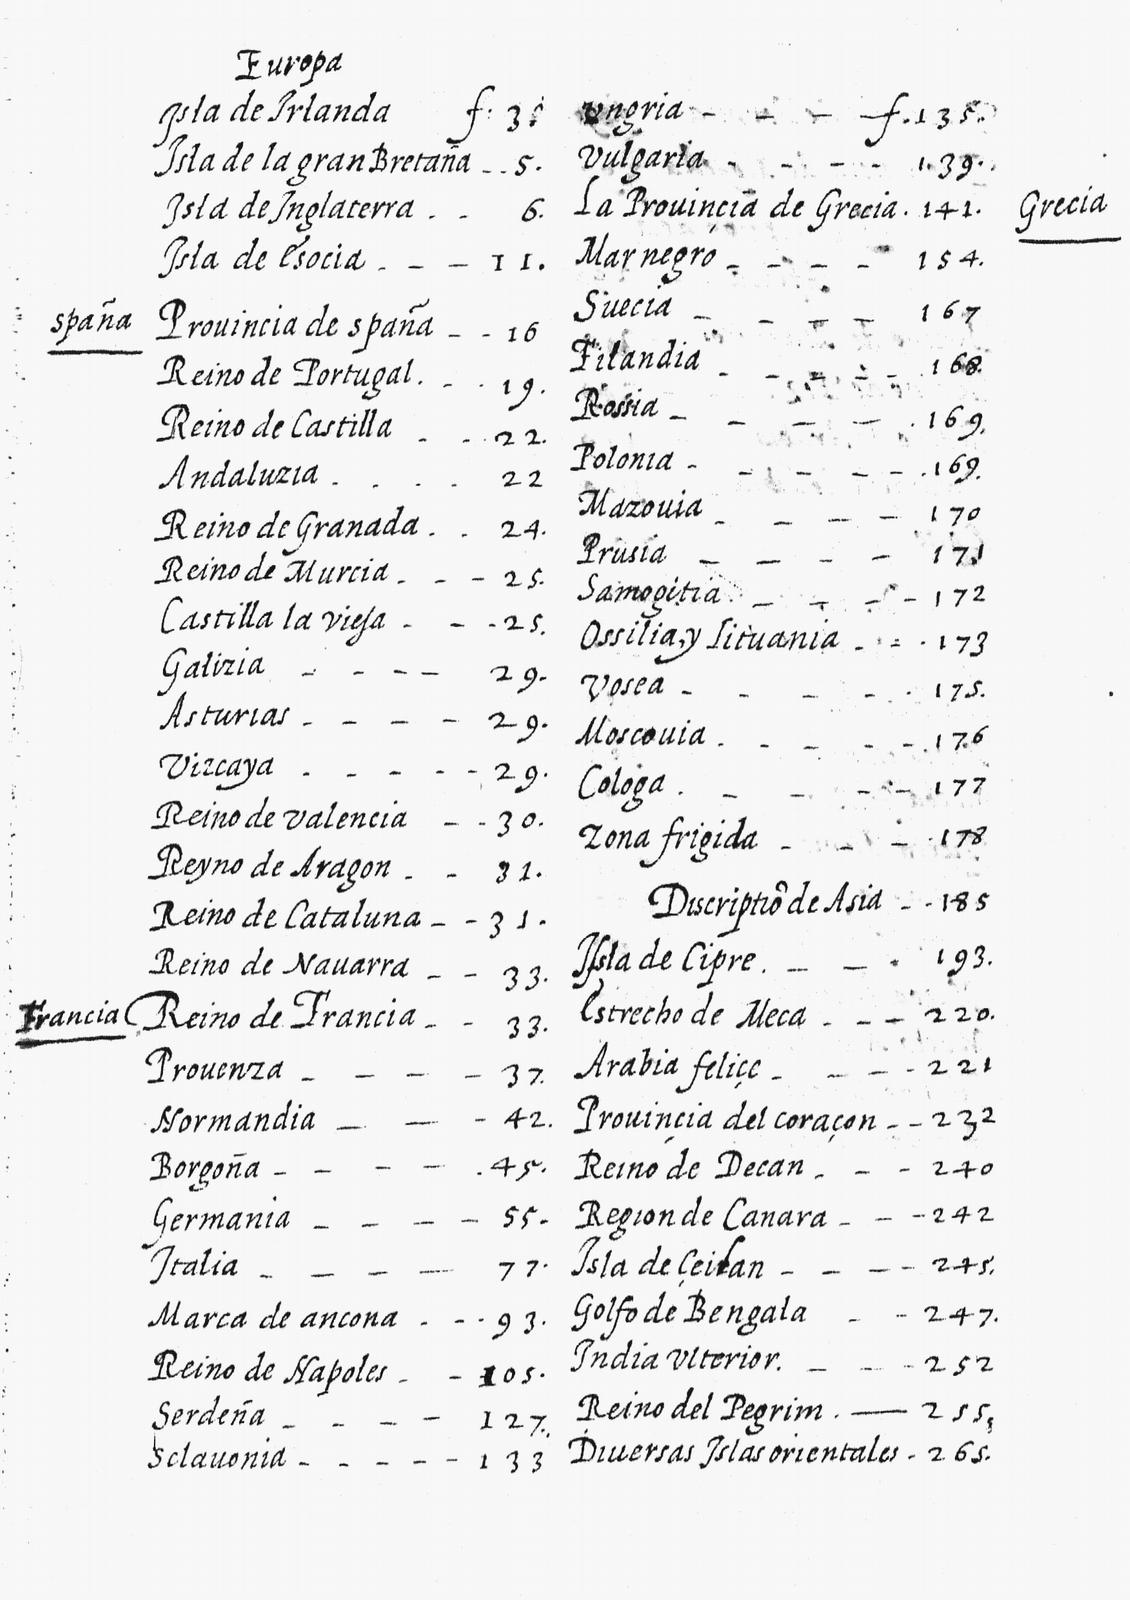 Europa
Isla de Irlanda f. 3.
Isla de la gran Bretaña - . 5.
Isla de Inglaterra . - 6.
Isla de Esocia . - - - 11.
spaña
Prouincia de spaña - - 16
Reino de Portugal . - . 19.
Reino de Castilla - - 22.
Andaluzia . . . . 22
Reino de Granada . . 24.
Reino de Murcia . - - 25.
Castilla la vieja . - - 25.
Galizia - - - - 29.
Asturias . - - - 29.
Vizcaya . - - - - 29.
Reino de valencia - - 30.
Reyno de Aragon . - 31.
Reino de Cataluna - - 31.
Reino de Nauarra - - 33.
Francia
Reino de Francia - - 33.
Prouenza - - - - 37.
Normandia - - - 42.
Borgoña - - - - . 45.
Germania - - - - 55.
Italia - - - - 77.
Marca de ancona . - - 93.
Reino de Napoles . - 105.
Serdeña - - - - 127.
Sclauonia - - - - - 133
Vngria - - - f. 135.
Vulgaria - - - - 139.
La Prouincia de Grecia . 141.
Grecia
Mar negro - - - - 154.
Suecia - - - - 167
Filandia - - - - - 168.
Rossia - - - - . 169.
Polonia - - - - - . 169.
Mazouia - - - - 170
Prusia - - - - 171
Samogitia . - - - - 172
Ossilia, y lituania . - . 173
Vosea - - - - . 175.
Moscouia . - - - - . 176
Cologa . - - - - 177
Zona frigida - - - 178
Discriptiō de Asia - - 185
Isla de Cipre . - - . 193.
Estrecho de Meca . - - 220.
Arabia feliçe - - - - 221
Prouincia del coraçon - - 232
Reino de Decan . - - 240
Region de Canara - - - 242
Isla de Çeilan - - - - 245.
Golfo de Bengala - - 247.
India vlterior. - - - 252
Reino del Pegrim . — 255.
Diuersas Islas orientales . 265.